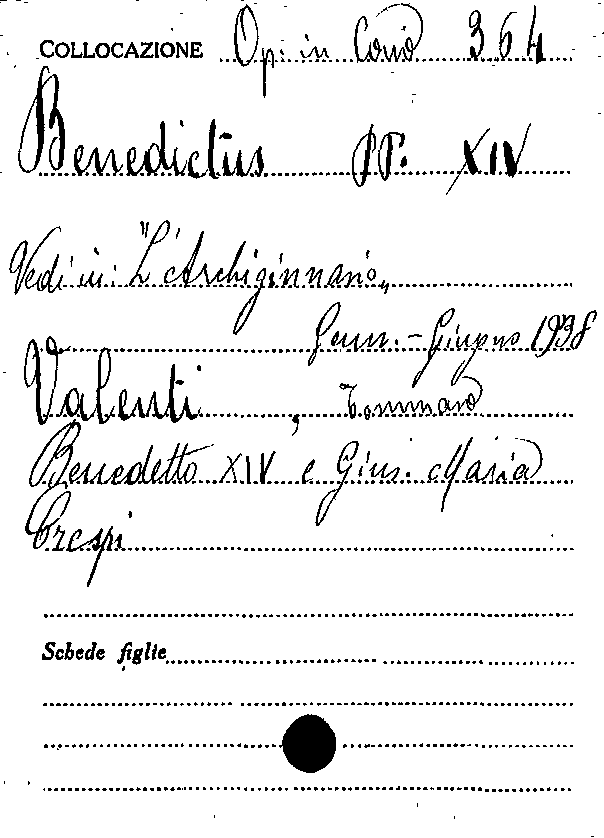 COLLOCAZIONE Op. in Cons 364
Benedictus PP. XIV
Vedi in: "L'Archiginnasio„
Genn. - Giugno 1938
Valenti, Tommaso
Benedetto XIV e Gius. Maria
Crespi
Schede figlie